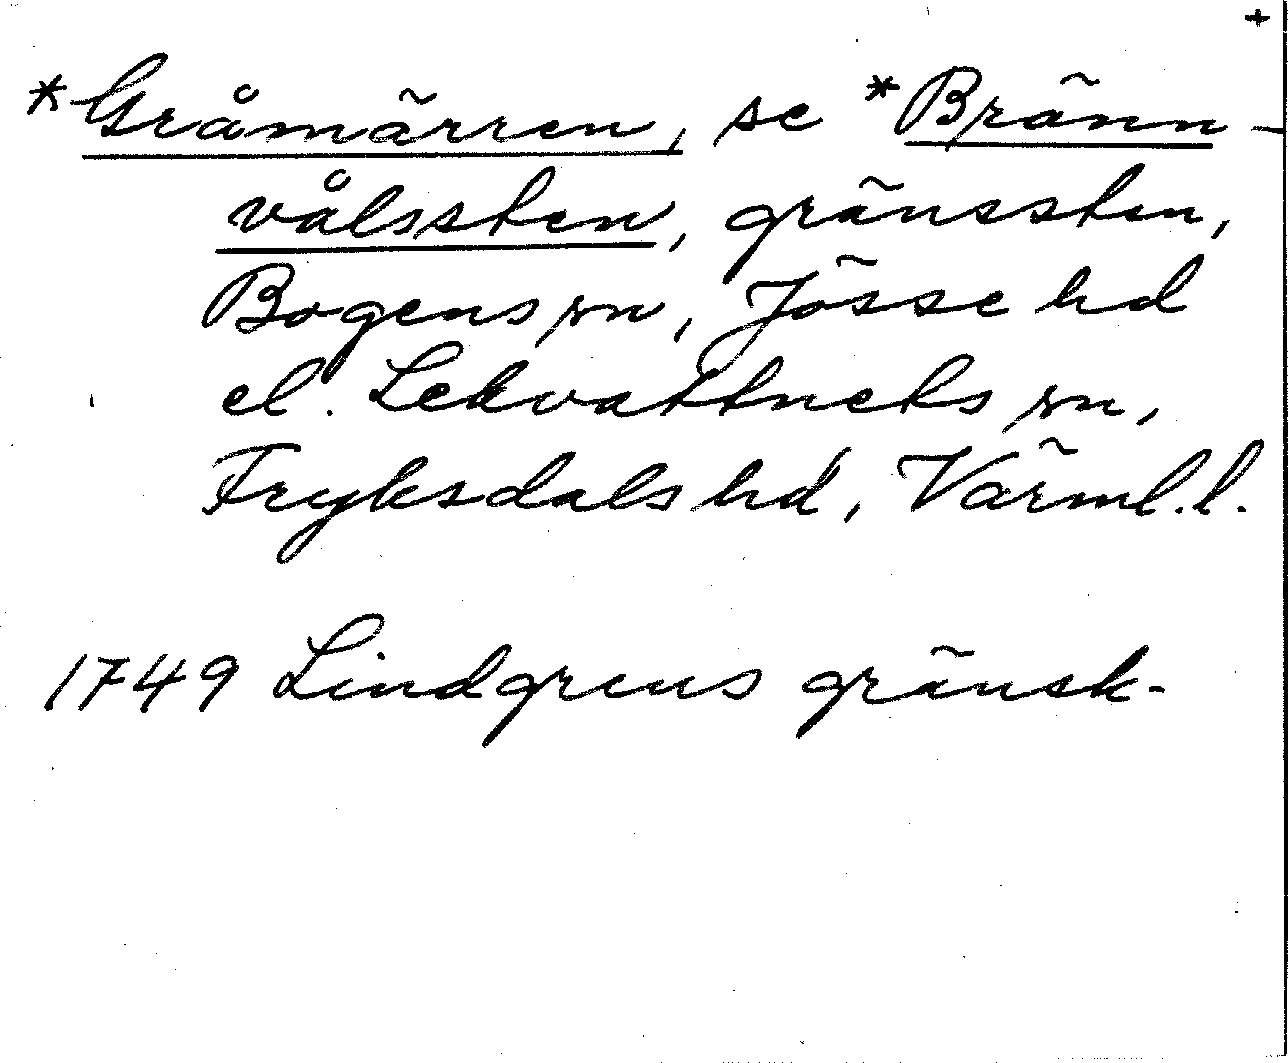 +
*Gråmärren, se *Bränn-
vålssten, gränssten,
Bogens sn, Jösse hd
el. Lekvattnets sn,
Fryksdals hd, Värml. l.
1749 Lindgrens gränsk.